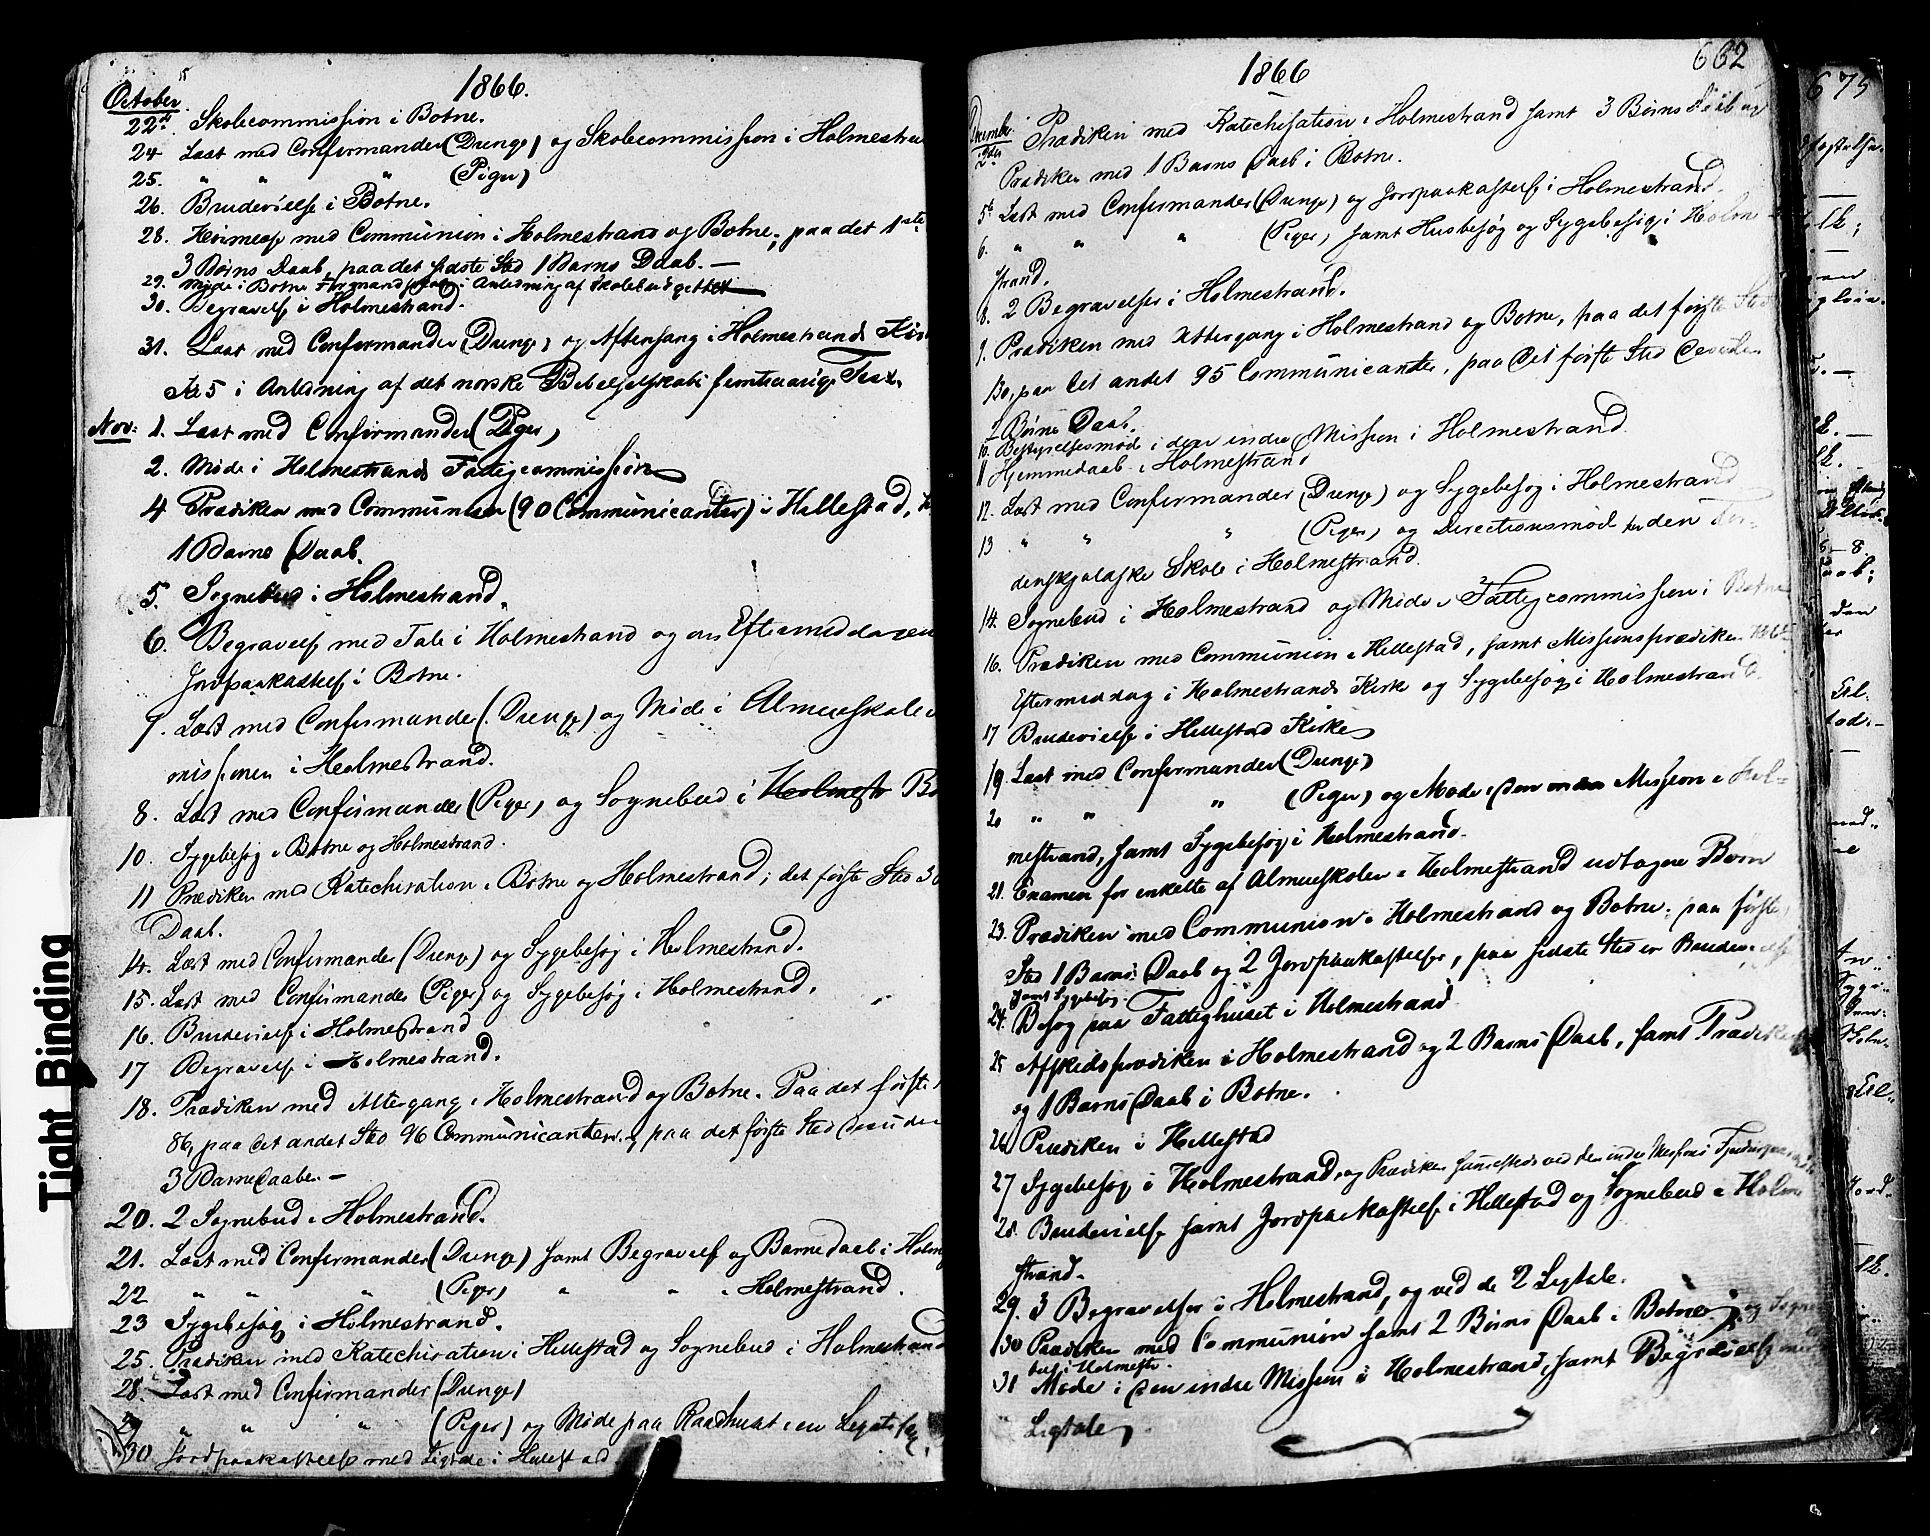 1866.
October
22de Skolecommission i Botne.
24 Læst med Confirmander (Drenge) og Skolecommission i Holmestra
25. " " " (Piger)
26. Brudevielse i Botne.
28. Høimesse med Communion i Holmestrand og Botne; paa det 1ste
3 Børns Daab, paa det sidste Sted 1 Barns Daab. —
29. Møde i Botne Formandskab i Anledning af Skolebudgettet
30. Begravelse i Holmestrand.
31. Læst med Confirmander (Drenge) og Aftensang i Holmestrands Kir
Kl 5 i Anledning af det norske Bibelselskabs femtiaarige Fest.
Nov: 1. Læst med Confirmander (Piger)
2. Møde i Holmestrands Fattigcommission
4 Prædiken med Communion (90 Communicanter) i Hillestad,
1 Barns Daab.
5. Sognebud i Holmestrand.
6. Begravelse med Tale i Holmestrand og om Eftermiddagen
Jordpaakastelse i Botne.
7. Læst med Confirmander (Drenge) og Møde i Almueskolecom
missionen i Holmestrand.
8. Læst med Confirmander (Piger) og Sognebud i Holmestr Bo
10. Sygebesøg i Botne og Holmestrand.
11 Prædiken med Katechisation i Botne og Holmestrand; det første Sted 3
Daab.
14. Læst med Confirmander (Drenge) og Sygebesøg i Holmestrand.
15. Læst med Confirmander (Piger) og Sygebesøg i Holmestrand.
16. Brudevielse i Holmestrand
17 Begravelse i Holmestrand.
18. Prædiken med Altergang i Holmestrand og Botne. Paa det første
86, paa det andet Sted 96 Communicanter, paa det første Sted desuden
3 Barnedaaber. —
20. 2 Sognebud i Holmestrand.
21. Læst med Confirmander (Drenge) samt Begravelse og Barnedaab i Holm
22 " " " (Piger) " " i Holmestrand.
23 Sygebesøg i Holmestrand.
25. Prædiken med Katechisation i Hillestad og Sognebud i Holmestrand
28. Læst med Confirmander (Drenge)
29 " " " (Piger) og Møde paa Raadhuset i en Legatsag.
30 Jordpaakastelse med Ligtale i Hillestad.
1866
662
December
2den Prædiken med Katechisation i Holmestrand samt 3 Børns Daab og
Prædiken med 1 Barns Daab i Botne.
5te Læst med Confirmander (Drenge) og Jordpaakastelse i Holmestrand.
6. " " " (Piger) samt Husbesøg og Sygebesøg i Holme
strand.
8. 2 Begravelser i Holmestrand.
9. Prædiken med Altergang i Holmestrand og Botne, paa det første Sted
130, paa det andet 95 Communicanter, paa det første Sted
2 Børns Daab.
10. Bestyrelsesmøde i den indre Mission i Holmestrand.
11 Hjemmedaab i Holmestrand
12. Læst med Confirmander (Drenge) og Sygebesøg i Holmestrand
13 " " " (Piger) og Directionsmøde for den Tor-
denskjoldske Skole i Holmestrand.
14. Sognebud i Holmestrand og Møde i Fattigcommissionen i Botne
16. Prædiken med Communion i Hillestad, samt Missionsprædiken
Eftermiddag i Holmestrands Kirke og Sygebesøg i Holmestrand.
17 Brudevielse i Hillestad Kirke
19 Læst med Confirmander (Drenge)
20 " " " (Piger) og Møde i den indre Mission i Hol-
mestrand, samt Sygebesøg i Holmestrand.
21. Examen for enkelte af Almueskolen i Holmestrand udtagne Børn
23. Prædiken med Communion i Holmestrand og Botne; paa første
Sted 1 Barns Daab og 2 Jordpaakastelser, paa sidste Sted en Brudevielse
samt Sygebesøg.
24. Besøg paa Fattighuset i Holmestrand
25 Afskedsprædiken i Holmestrand og 2 Børns Daab, samt Prædiken
og 1 Barns Daab i Botne.
26 Prædiken i Hillestad
27 Sygebesøg i Holmestrand, og Prædiken sammesteds ved den indre Missions
28. Brudevielse samt Jordpaakastelse i Hillestad og Sognebud i Holme
strand.
29. 3 Begravelser i Holmestrand, og ved de 2 Ligtale.
30 Prædiken med Communion samt 2 Børns Daab i Botne, og Sogne
bud i Holmestr.
31 Møde i den indre Mission i Holmestrand, samt Begravelse med
Ligtale.
675
Tight Binding